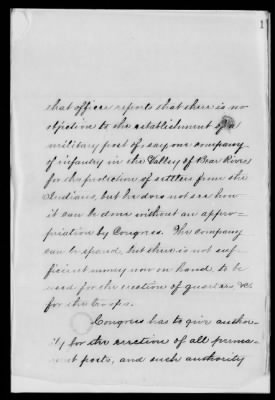 1
that officer reports that there is no
objection to the establishment of a
military post of, say one company
of infantry in the Valley of Bear River
for the protection of settlers from the
Indians, but he does not see how
it can be done without an appro-
priation by Congress. The company
can be spared, but there is not suf-
ficient money now on hand to be
used for the erection of quarters &c
for the troops.
Congress has to give author-
ity for the erection of all perma-
nent posts, and such authority